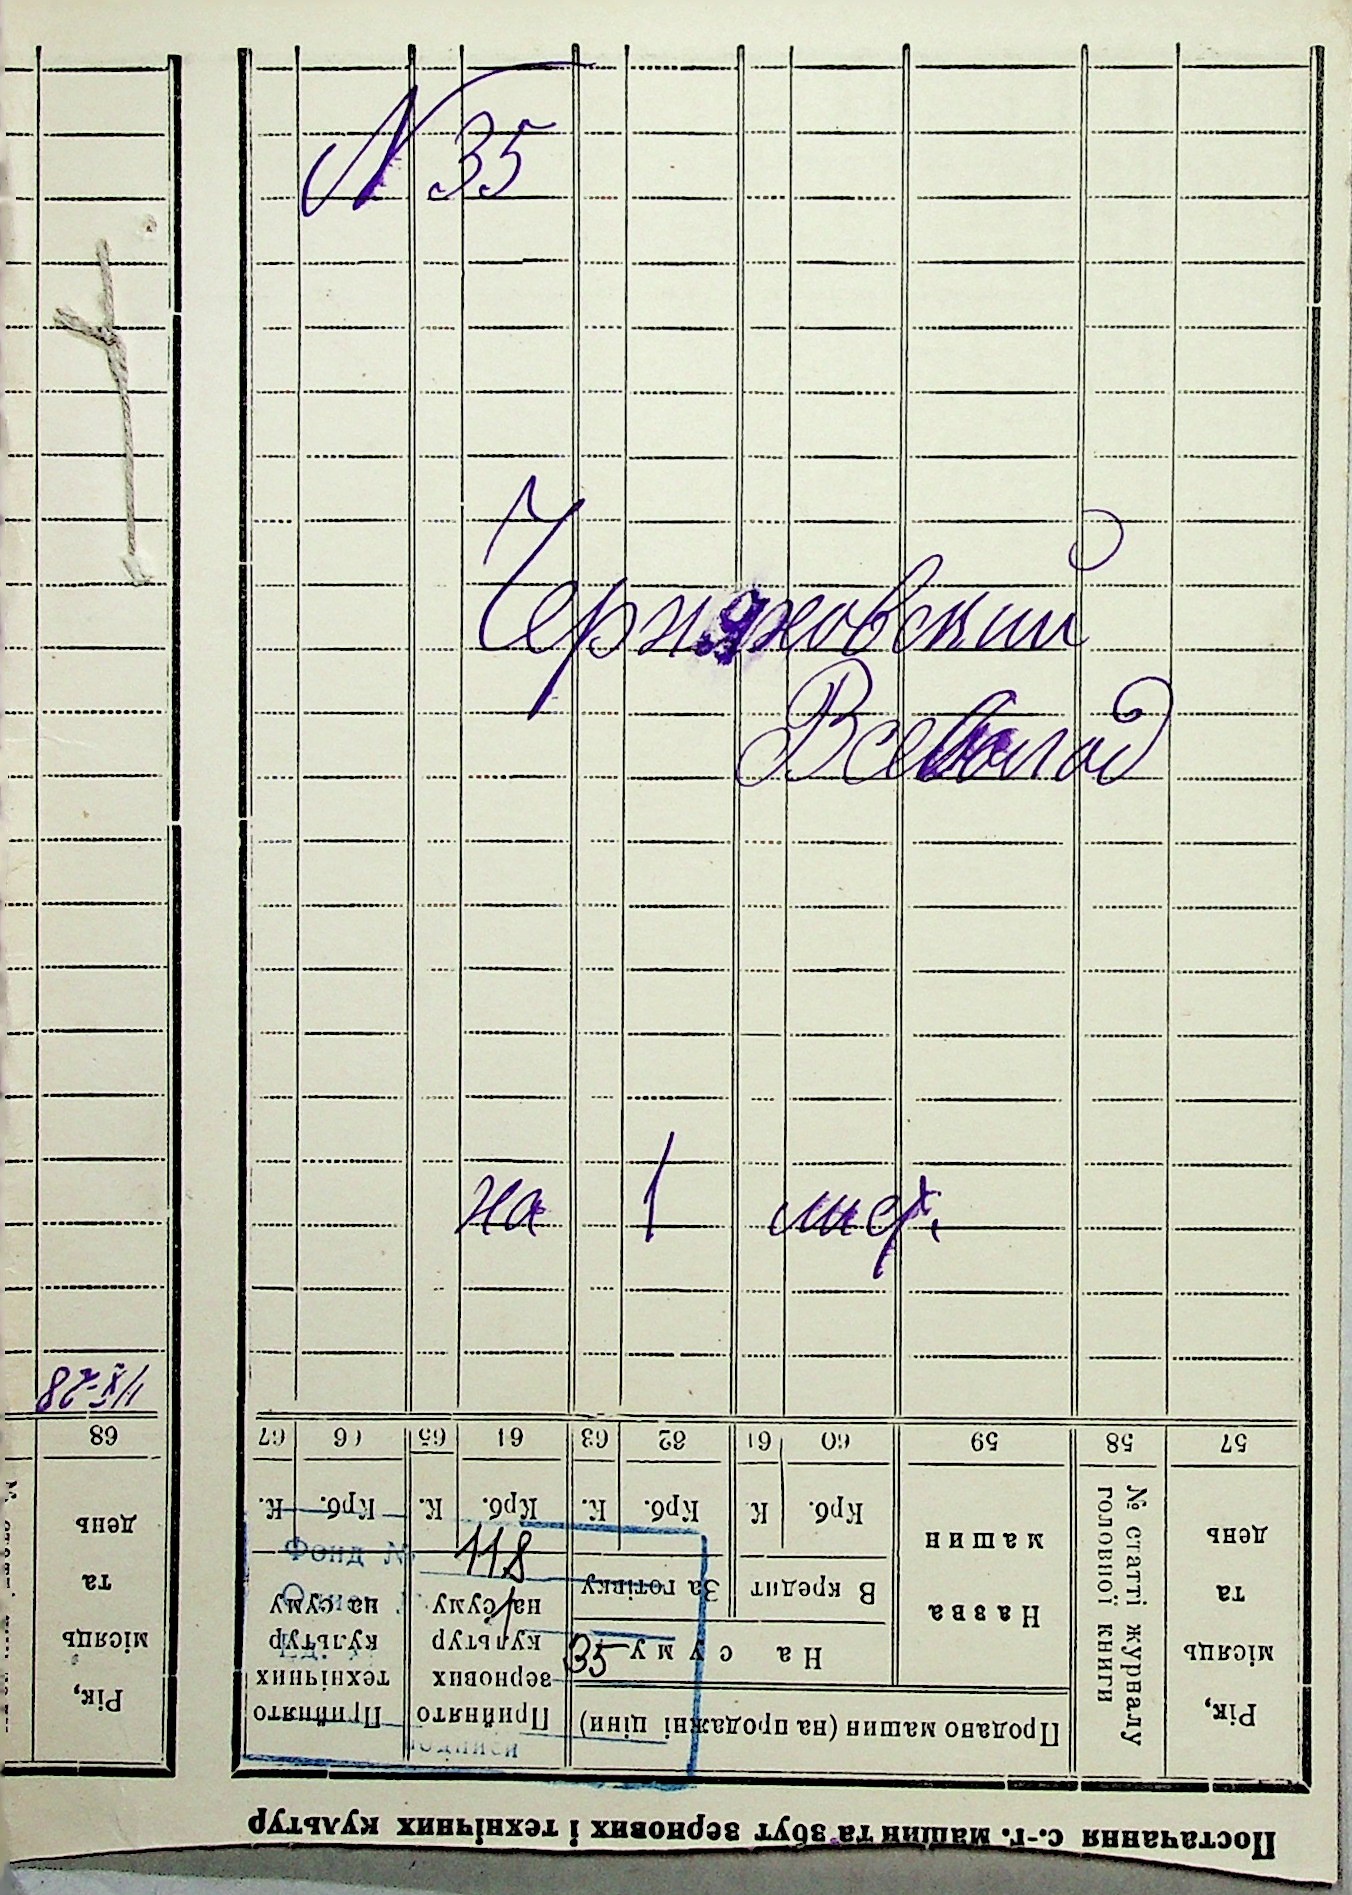 N 35
Черняховский
Всеволод
на 1 лист.
Фонд №
118
1
35
Постачання с.-г. машин та збут зернових і технічних культур
Рік, місяць та день
№ статті журналу головної книги
Назва машин
Продано машин (на продажні ціни)
На суму
В кредит
За готівку
Крб.
К
Крб.
К.
Прийнято зернових культур на суму
Крб.
К.
Прийнято технічних культур на суму
Крб.
К.
57
58
59
60
61
62
63
64
65
66
67
Рік, місяць та день
68